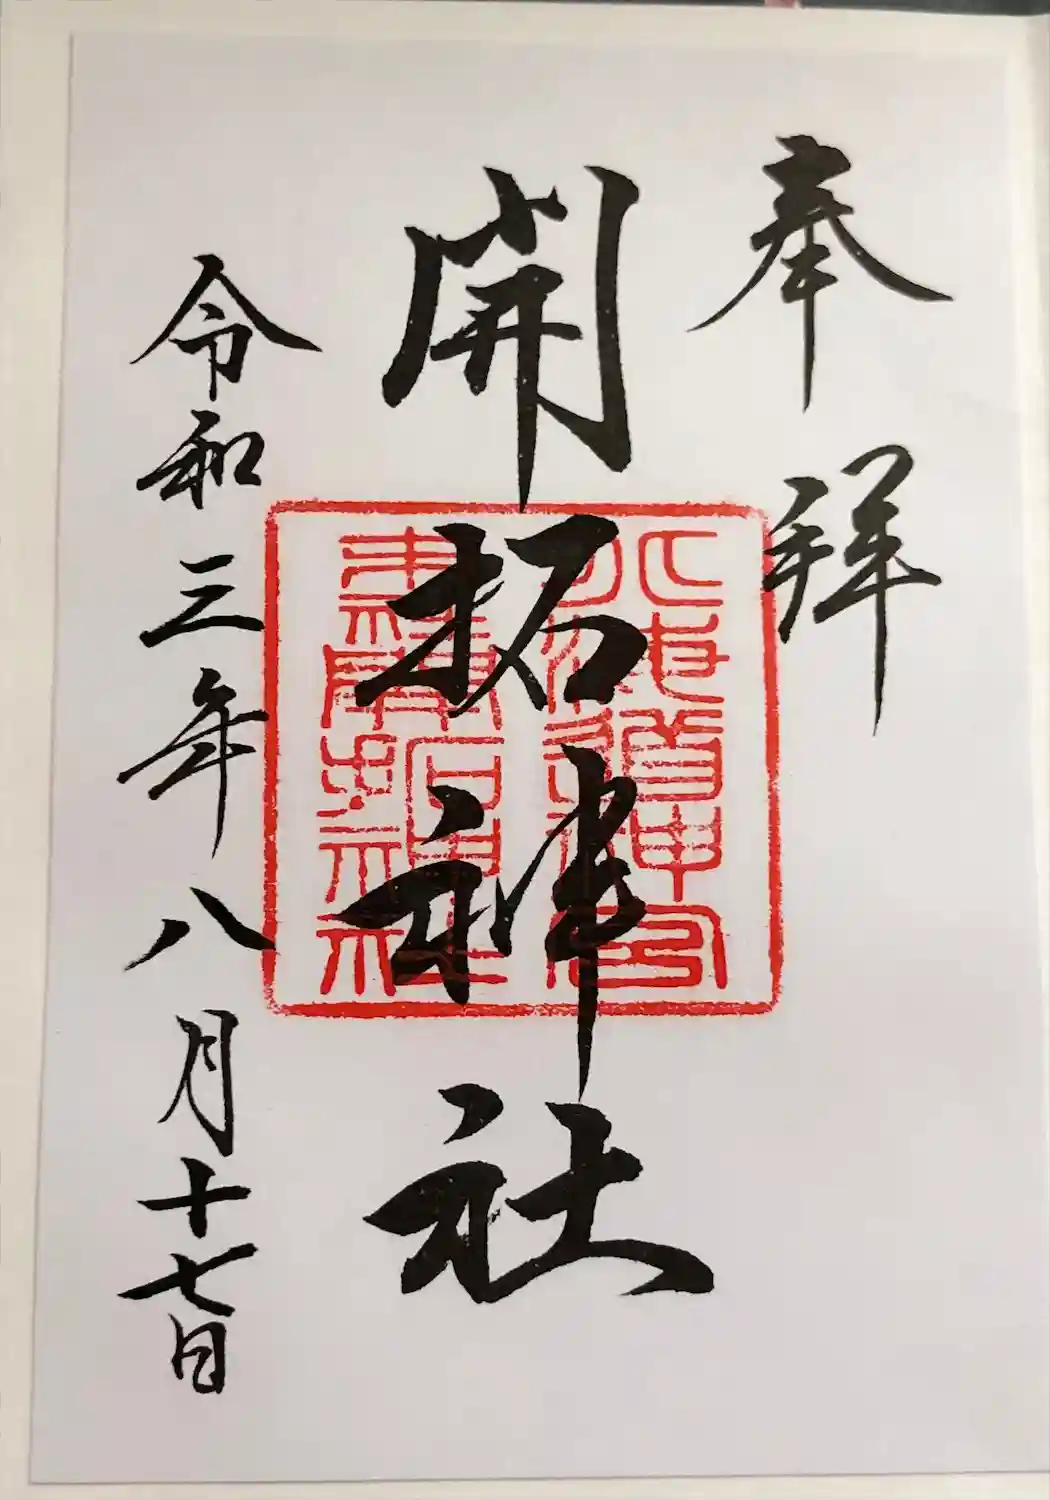 奉拝
開拓神社
北海道神宮
末社開拓神社
令和三年八月十七日